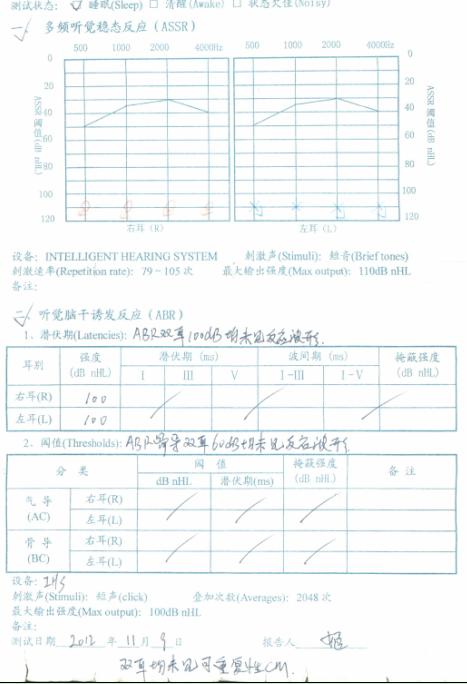 测试状态: ☑ 睡眠(Sleep) □ 清醒(Awake) □ 状态欠佳(Noisy)
一、多频听觉稳态反应(ASSR)
500 1000 2000 4000Hz 500 1000 2000 4000Hz
ASSR 阈值(dB nHL)
0 20 40 60 80 100 120
0 20 40 60 80 100 120
ASSR 阈值(dB nHL)
右耳(R) 左耳(L)
设备: INTELLIGENT HEARING SYSTEM 刺激声(Stimuli): 短音(Brief tones)
刺激速率(Repetition rate): 79-105 次 最大输出强度(Max output): 110dB nHL
备注:
二、听觉脑干诱发反应(ABR)
1、潜伏期(Latencies): ABR双耳100dB均未见反应波形.
耳别 强度 潜伏期 (ms) 波间期 (ms) 掩蔽强度
(dB nHL) I III V I-III I-V (dB nHL)
右耳(R) 100
左耳(L) 100
2、阈值(Thresholds): ABR骨导双耳60dB均未见反应波形
分 类 阈 值 掩蔽强度 备 注
dB nHL 潜伏期(ms) (dB nHL)
气 导 右耳(R)
(AC) 左耳(L)
骨 导 右耳(R)
(BC) 左耳(L)
设备: IHS
刺激声(Stimuli): 短声(click) 叠加次数(Averages): 2048 次
最大输出强度(Max output): 100dB nHL
备注:
测试日期 2012 年 11 月 9 日 报告人
双耳均未见可重复性CM.